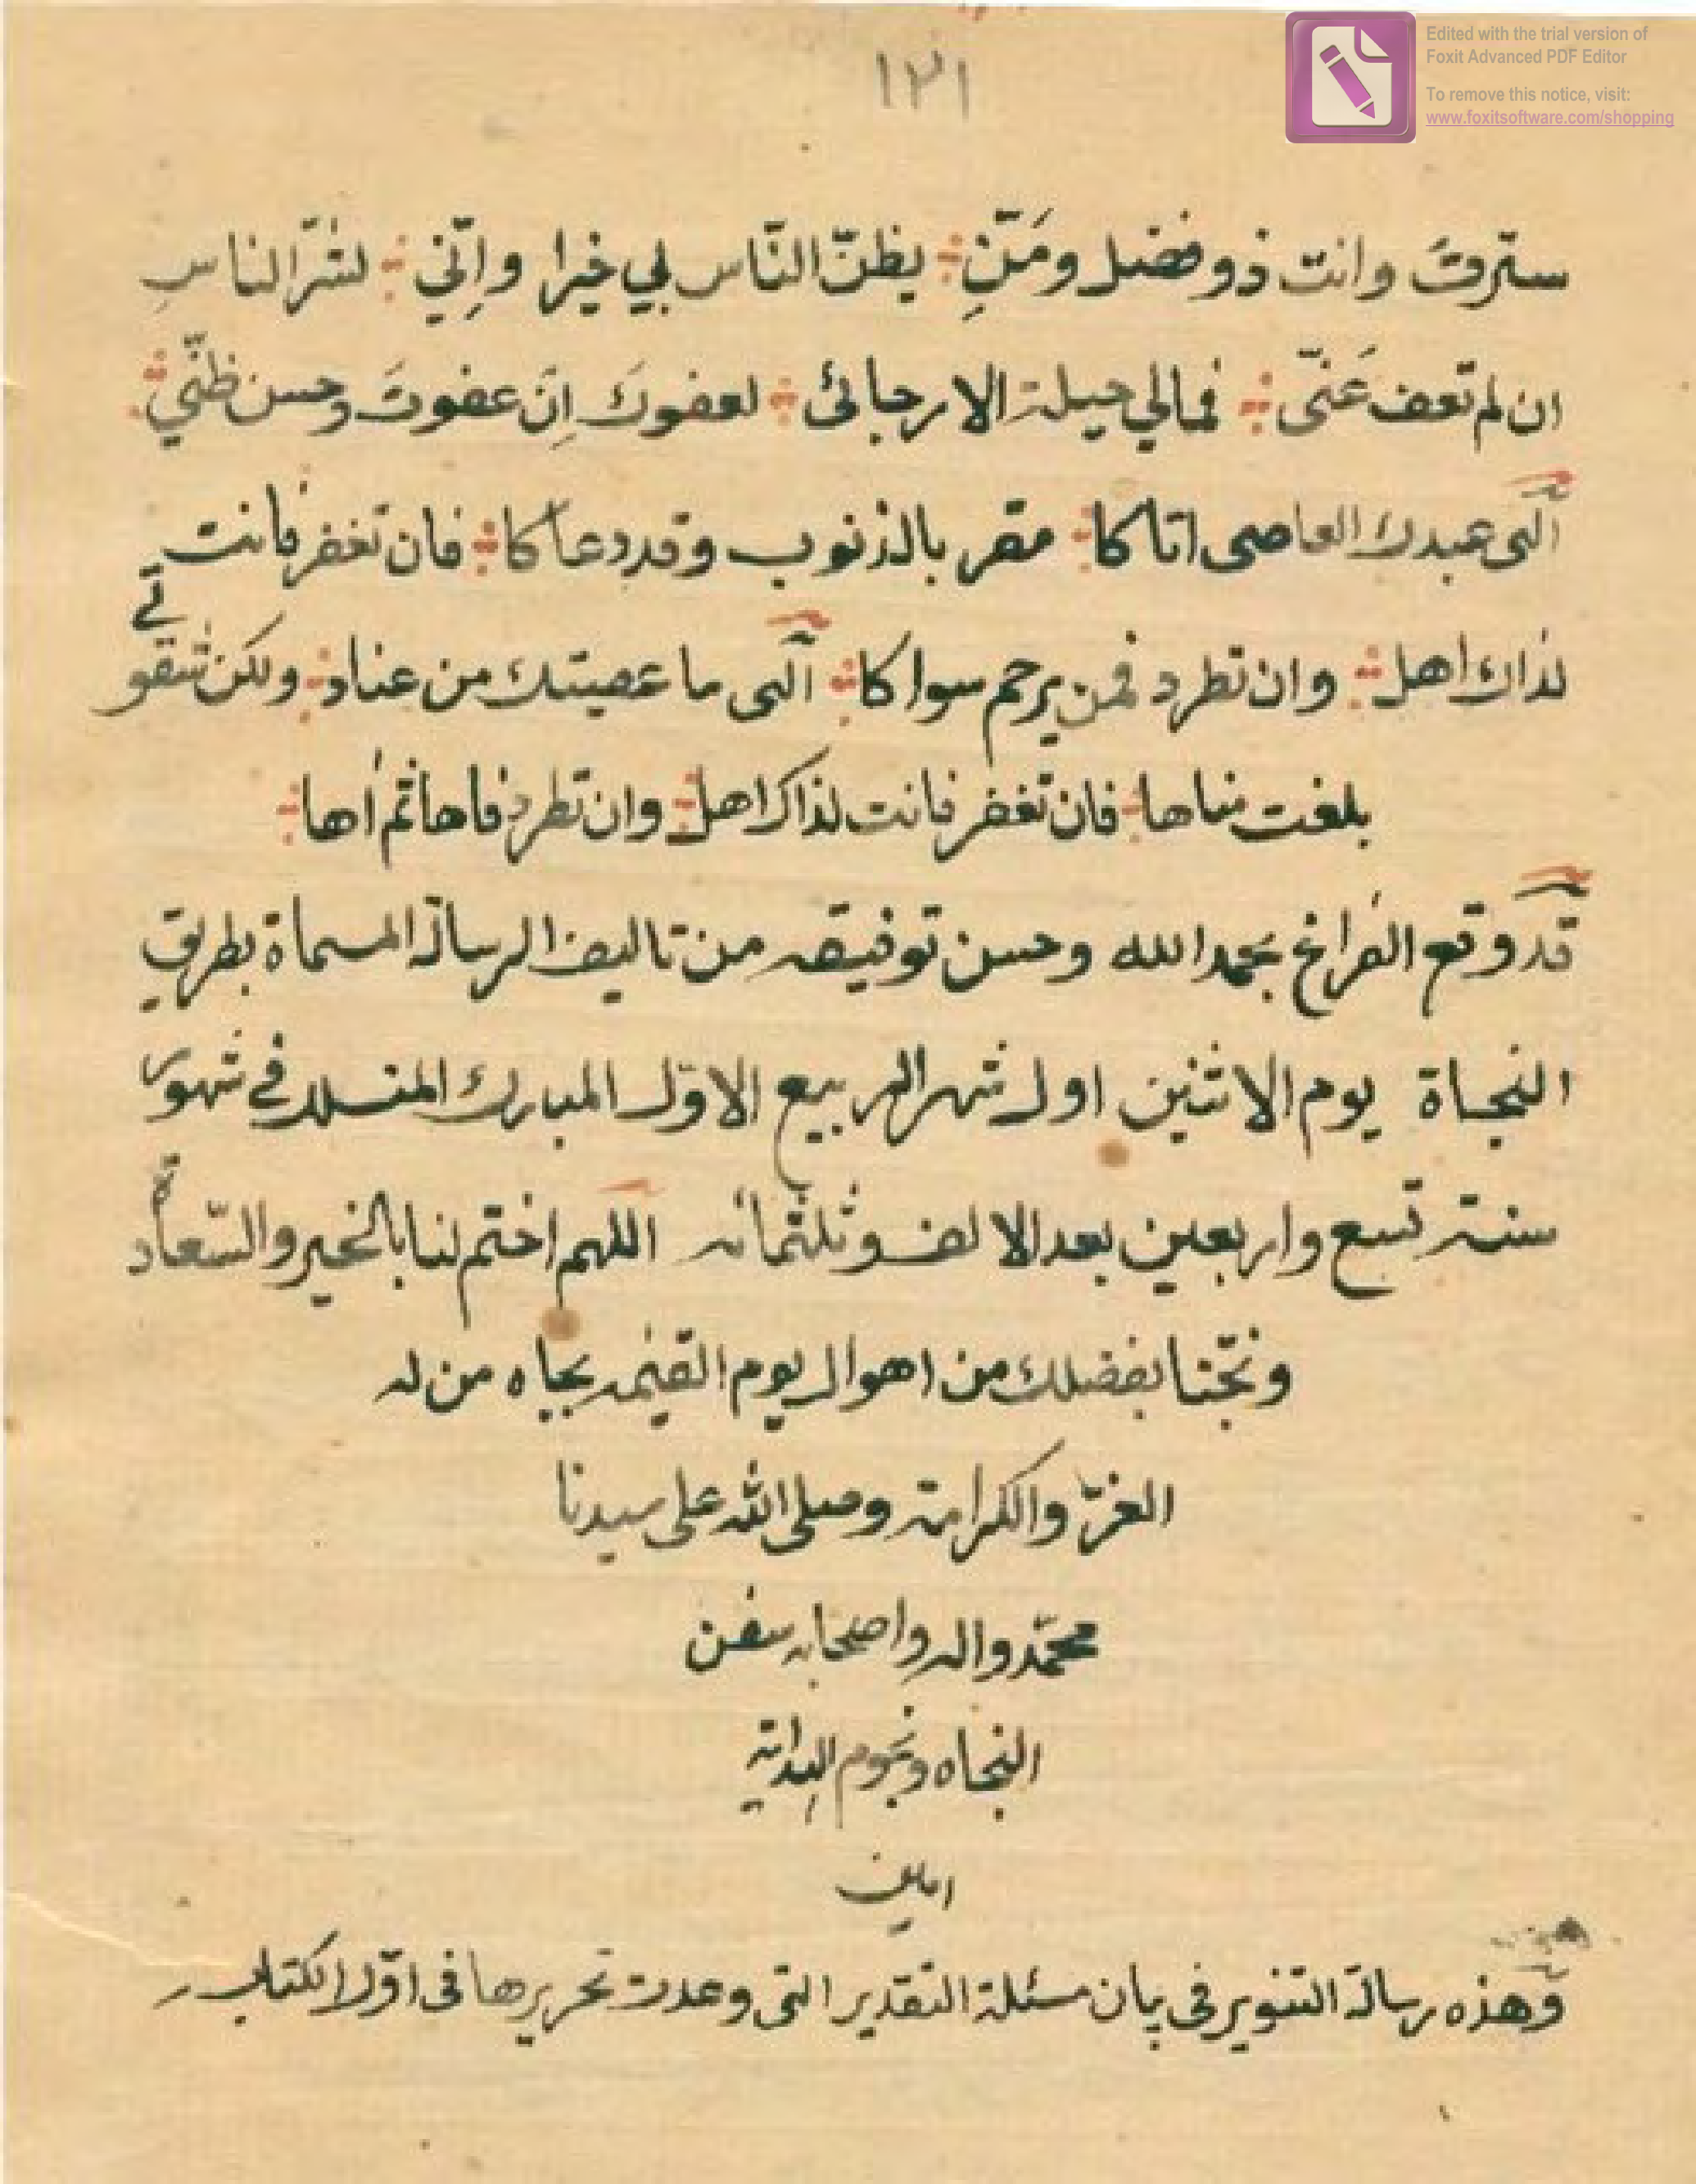 Edited with the trial version of
Foxit Advanced PDF Editor
To remove this notice, visit:
www.foxitsoftware.com/shopping
١٢١
سترتَ وانت ذو فضل ومَنِّ ؞ يظنّ النّاس بي خيرا وإنّي ؞ لشرّ الناسِ
ان لم تعف عَنّى ؞ فمالي حيلة الا رجائى ؞ لعفوكَ اِنَ عفوتَ وحسن ظنّي ؞
الٓهى عبدك العاصى اتاكا ؞ مقر بالذنوب وقد دعاكا ؞ فان تغفر فانت
لذاك اهل ؞ وان تطرد فمن يرحم سواكا ؞ الٓهى ما عصيتك من عناد ؞ ولكن شقوتى
بلغت مناها ؞ فان تغفر فانت لذاك اهل ؞ وان تطرد فاها ثم اها ؞
قد وقع الفراغ بحمد الله وحسن توفيقه من تاليف الرسالة المسماة بطريق
النجاة يوم الاثنين اول شهر ربيع الاوّل المبارك المنسلك في شهور
سنة تسع واربعين بعد الالف وثلثمائه اللهم اختم لنا بالخير والسّعادة
ونجّنا بفضلك من اهوال يوم القيٰمه بجاه من له
العزّ والكرامة وصلى الله على سيدنا
محمّد واله واصحابه سفن
النجاه ونجوم الهداية
امين
وهذه رسالة التنوير فى بيان مسئلة التقدير التى وعدت تحريرها فى اوّل الكتاب